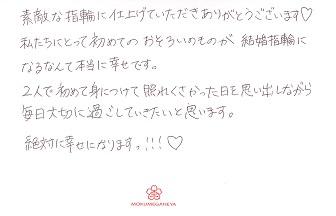 素敵な指輪に仕上げていただきありがとうございます♡
私たちにとって初めての おそろいのものが 結婚指輪に
なるなんて本当に幸せです。
2人で初めて身につけて 照れくさかった日を思い出しながら
毎日大切に過ごしていきたいと思います。
絶対に幸せになりますっ!!!♡
MOKUMEGANEYA